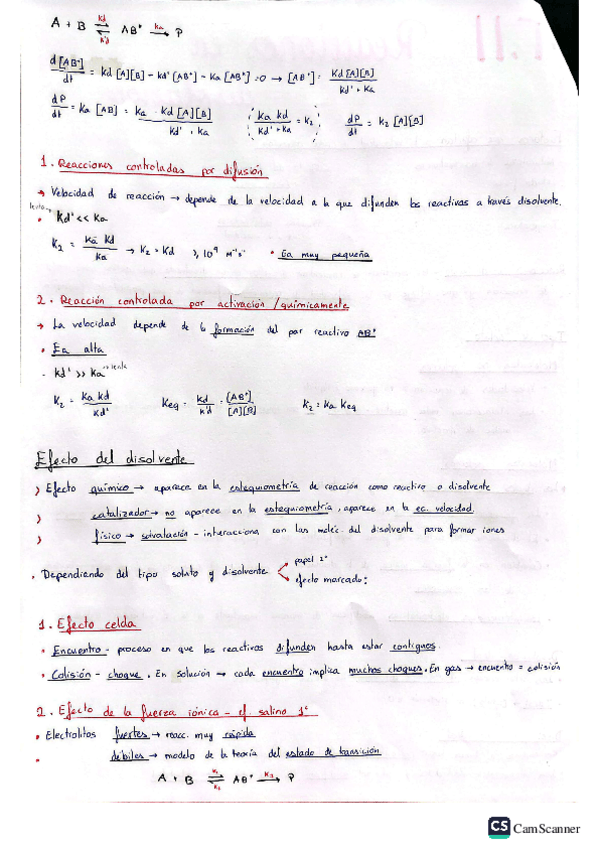 A + B ⇌ AB* → P
kd
kd'
ka
d[AB*]/dt = kd [A][B] - kd' [AB*] - ka [AB*] = 0 → [AB*] = kd [A][B] / kd' + ka
dP/dt = ka [AB] = ka · kd [A][B] / kd' + ka   ka kd / kd' + ka = k2   dP/dt = k2 [A][B]
1. Reacciones controladas por difusión
→ Velocidad de reacción → depende de la velocidad a la que difunden los reactivos a través disolvente.
lenta
• kd' << ka
k2 = ka kd / ka → k2 = kd ≥ 10⁹ M⁻¹s⁻¹ • Ea muy pequeña
2. Reacción controlada por activación / químicamente
→ La velocidad depende de la formación del par reactivo AB*
• Ea alta
- kd' >> ka → lenta
k2 = ka kd / kd'   Keq = kd / k'd = [AB*] / [A][B]   k2 = ka Keq
Efecto del disolvente
) Efecto químico → aparece en la estequiometría de reacción como reactivo o disolvente
) catalizador → no aparece en la estequiometría, aparece en la ec. velocidad.
) físico → solvatación - interacciona con las moléc. del disolvente para formar iones
papel 2º
. Dependiendo del tipo soluto y disolvente
efecto marcado:
1. Efecto celda
• Encuentro - proceso en que los reactivos difunden hasta estar contiguos.
• Colisión - choque. En solución → cada encuentro implica muchos choques. En gas → encuentro = colisión
2. Efecto de la fuerza iónica - ef. salino 1º
• Electrolitos fuertes → reacc. muy rápida
• débiles → modelo de la teoría del estado de transición
A + B ⇌ AB* → P
CS CamScanner